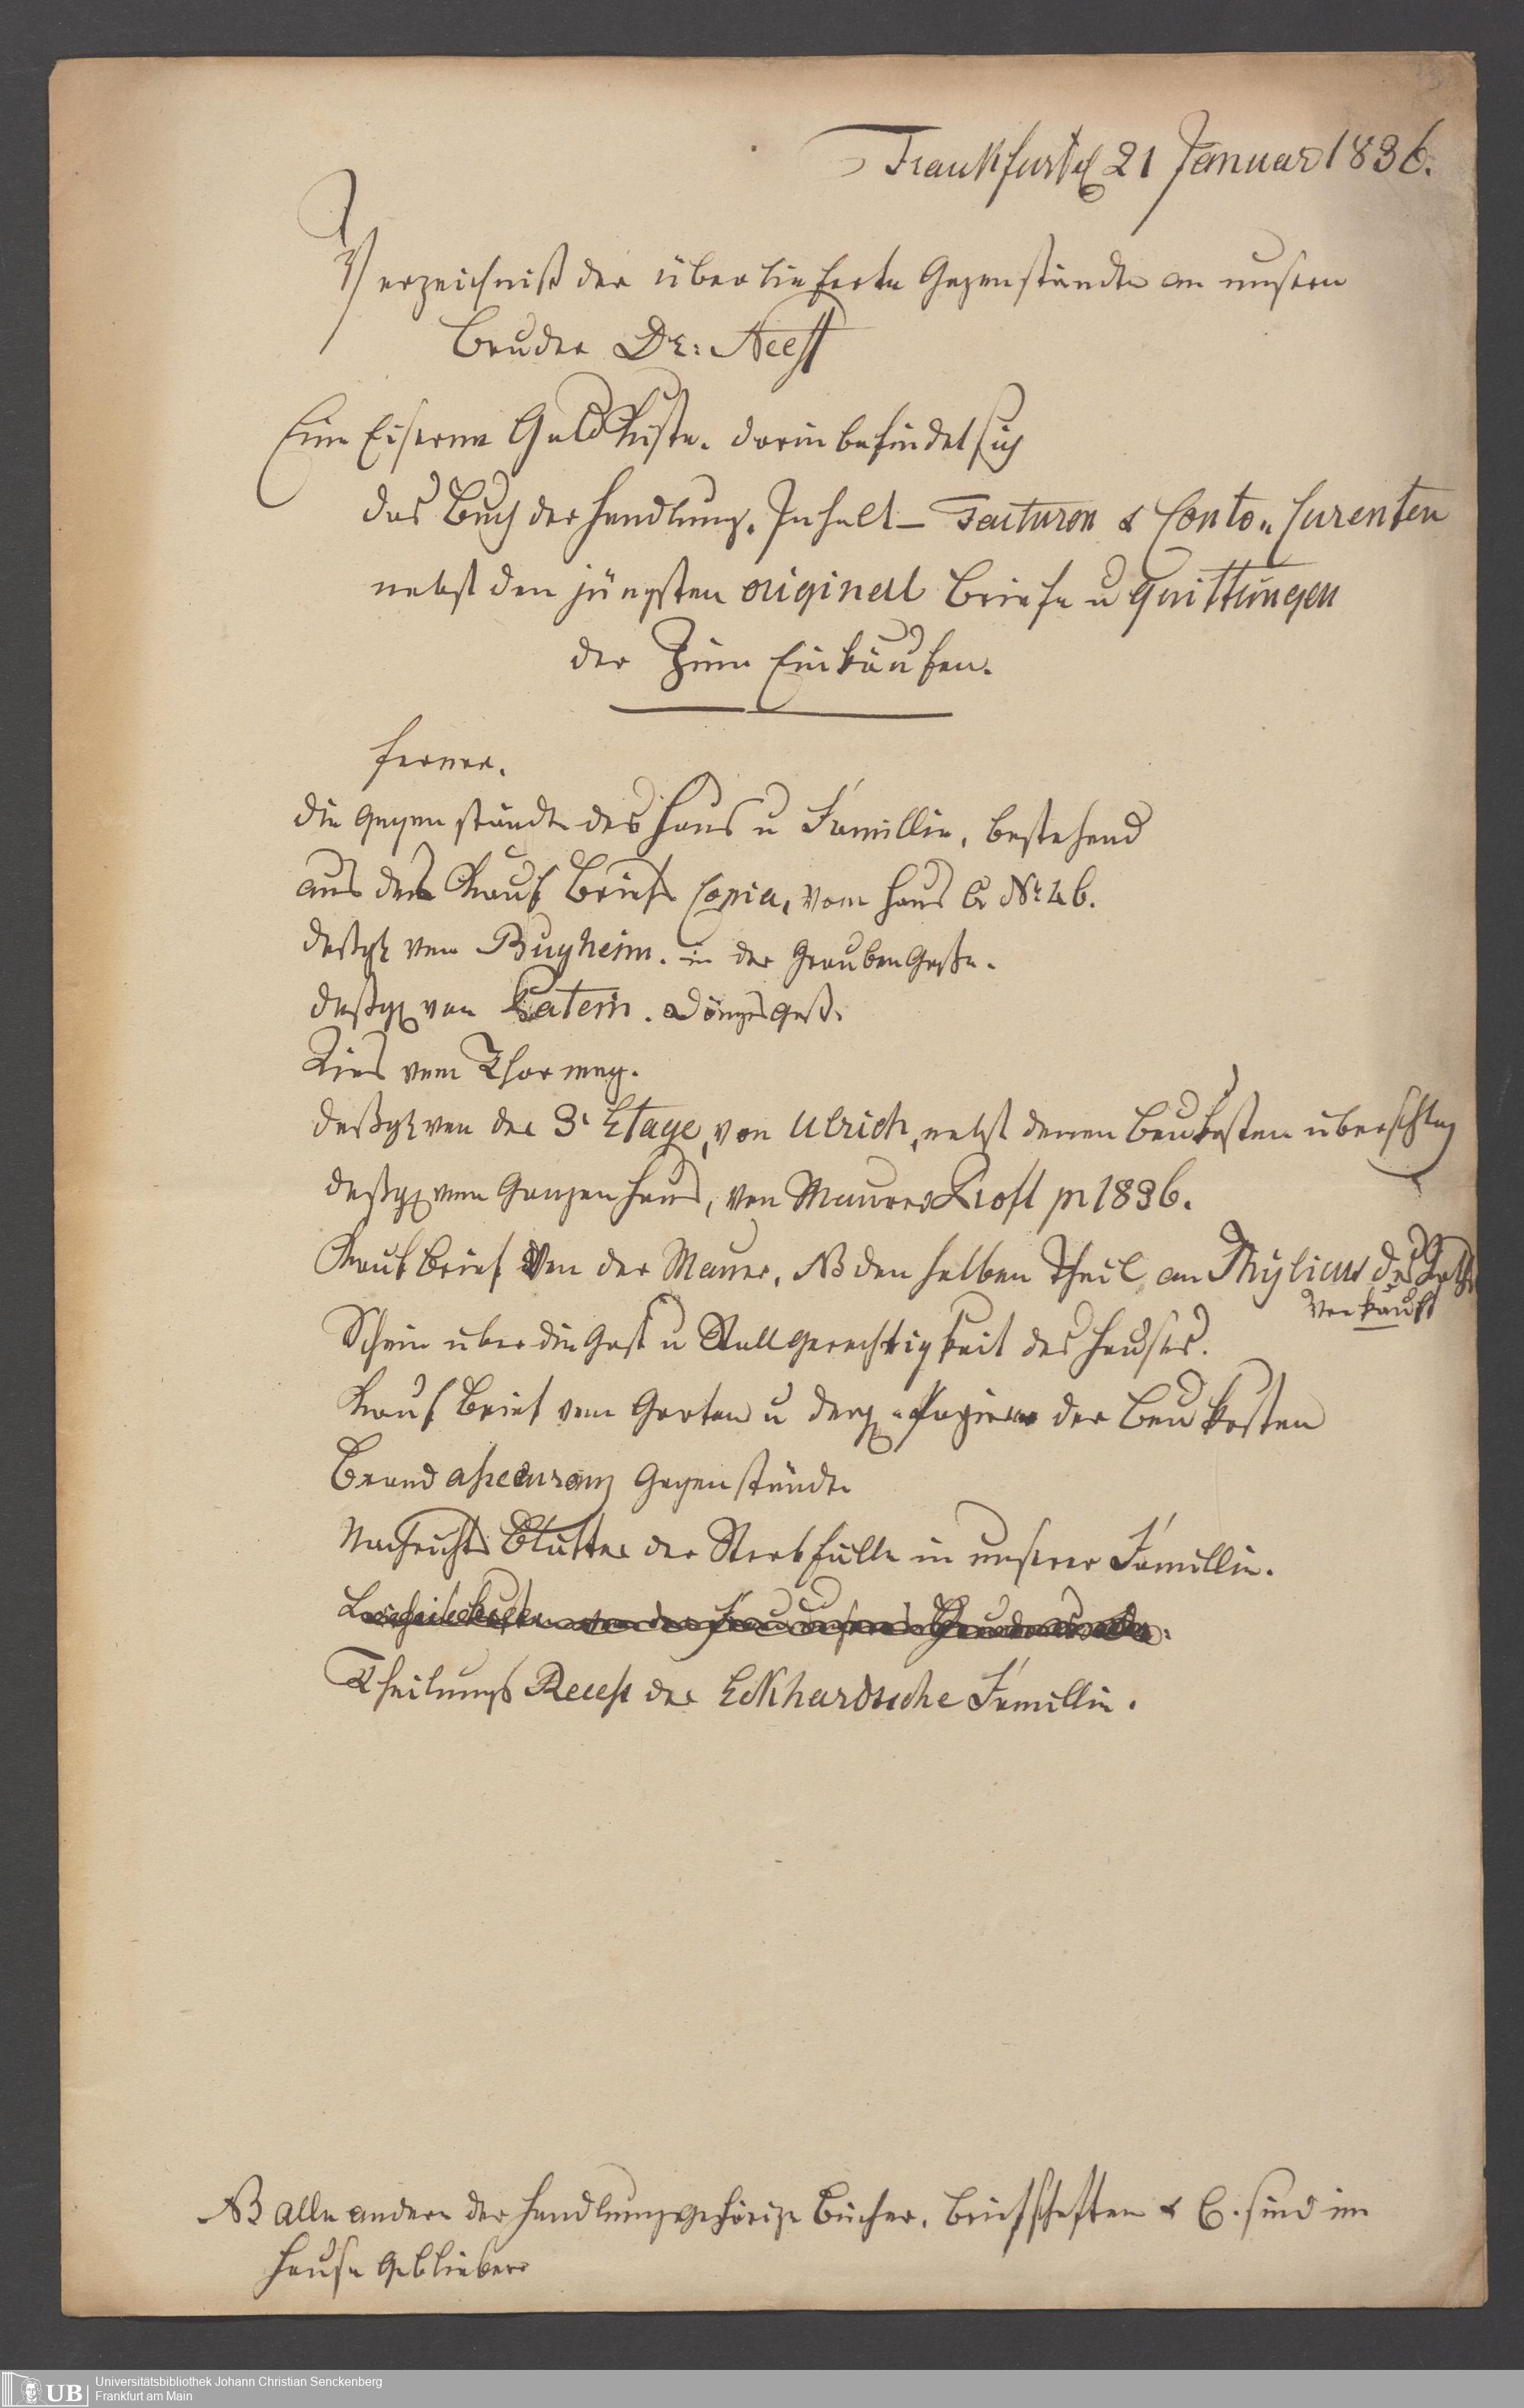 Frankfurt d 21 Januar 1836.
Verzeichniß der überlieferte Gegenstände an unsern
Bruder Dr: Neeff
Eine Eiserne Geld Kiste. darin befindet sich
das Buch der Handlung. Inhalt – Facturen & Conto „ Curenten
nebst den jüngsten original Briefe u Quittungen
der Zinn Einkäufen.
ferner.
die Gegenstände des Haus u Familie, bestehend
aus des Kauf Briefs Copia, vom Haus N: 46.
deßgl von Bugheim. in der Grauben Gaße.
deßgl von Döngesgaß.
Riss vom Thorweg.
deßgl von der 3t Etage, von Ulrich, nebst denen Baukosten überschlag
deßgl vom Ganzen Haus, von Maurer p 1836.
Kauf Brief Von der Mauer. NB den halben Theil an Mylius
Verkauft
Schein über die Gast u Stallgerechtigkeit des Hauses.
Kauf Brief vom Garten u Papiere der Baukosten
Brand assecuranz Gegenstände
Nachrichts Blätter der Sterbfälle in unserer Familie.
Theilungs Recess der Eckhardsche Familie.
NB alle andere der Handlung gehörige Bücher, Briefschaften & C. sind im
Hause Geblieben
Universitätsbibliothek Johann Christian Senckenberg
Frankfurt am Main
UB